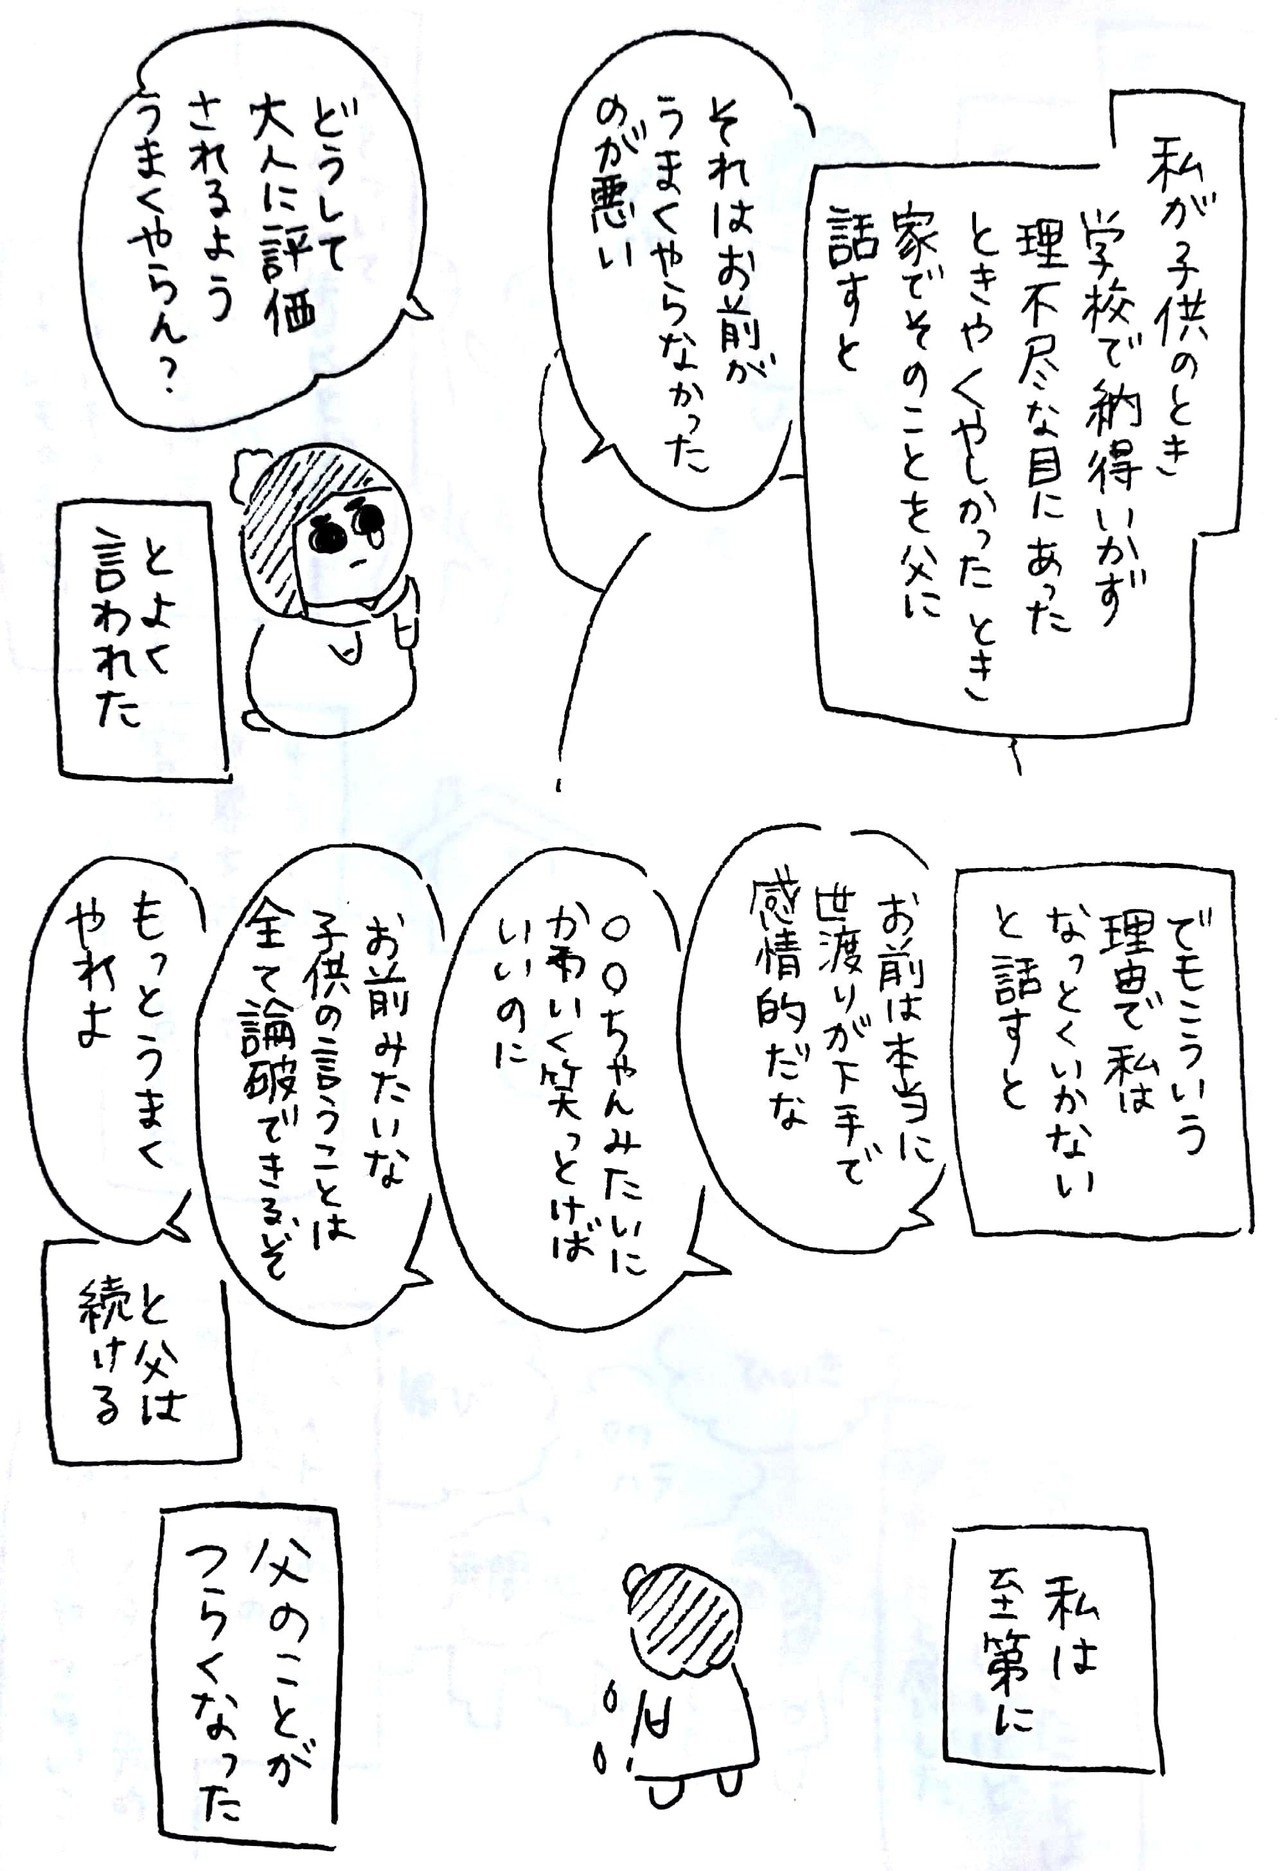 私が子供のとき
学校で納得いかず
理不尽な目にあった
ときやくやしかったとき
家でそのことを父に
話すと
それはお前が
うまくやらなかった
のが悪い
どうして
大人に評価
されるよう
うまくやらん？
とよく
言われた
でもこういう
理由で私は
なっとくいかない
と話すと
お前は本当に
世渡りが下手で
感情的だな
○○ちゃんみたいに
かわいく笑っとけば
いいのに
お前みたいな
子供の言うことは
全て論破できるぞ
もっとうまく
やれよ
と父は
続ける
私は
至第に
父のことが
つらくなった